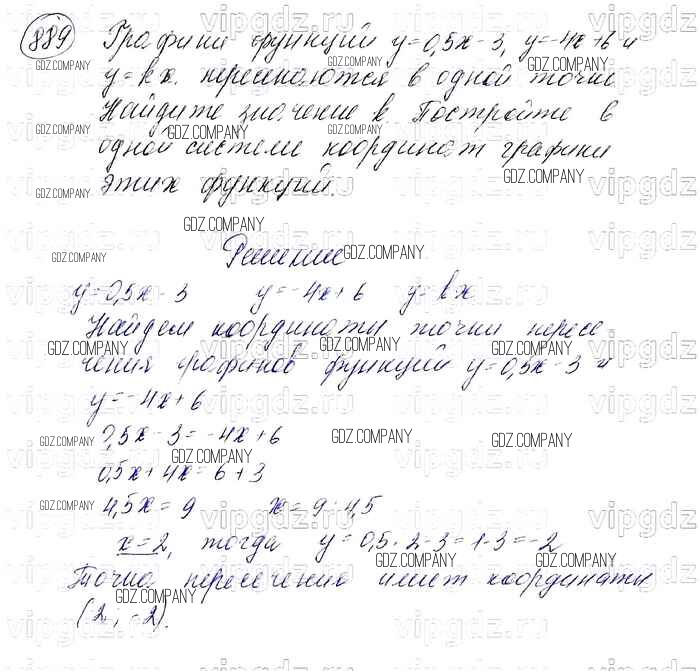 889 Графики функций y=0,5x-3, y=-4x+6 и
y=kx. пересекаются в одной точке
Найдите значение k. Постройте в
одной системе координат графики
этих функций.
Решение
y=0,5x-3 y=-4x+6 y=kx
Найдем координаты точки пересе
чения графиков функций y=0,5x-3 и
y=-4x+6
0,5x-3=-4x+6
0,5x+4x=6+3
4,5x=9 x=9:4,5
x=2, тогда y=0,5·2-3=1-3=-2
Точка пересечения имеет координаты
(2;-2).